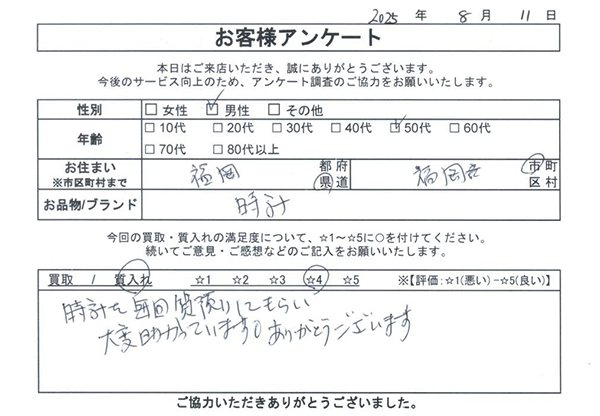 2025 年 8 月 11 日
お客様アンケート
本日はご来店いただき、誠にありがとうございます。
今後のサービス向上のため、アンケート調査のご協力をお願いいたします。
性別 □ 女性 ☑ 男性 □ その他
年齢 □ 10代 □ 20代 □ 30代 □ 40代 ☑ 50代 □ 60代
□ 70代 □ 80代以上
お住まい 福岡 都 府 福岡 市 町
※市区町村まで 県 道 区 村
お品物/ブランド 時計
今回の買取・質入れの満足度について、☆1~☆5に○を付けてください。
続いてご意見・ご感想などのご記入をお願いいたします。
買取 / 質入れ ☆1 ☆2 ☆3 ☆4 ☆5 ※【評価:☆1(悪い)-☆5(良い)】
時計を毎回質預りしてもらい
大変助かっています。ありがとうございます
ご協力いただきありがとうございました。